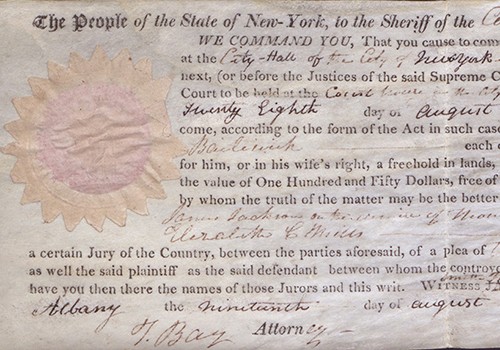 The People of the State of New-York, to the Sheriff of the
WE COMMAND YOU, That you cause to come
at the City-Hall of the City of New York
next, (or before the Justices of the said Supreme C
Court to be held at the Court house in the
Twenty Eighth day of August
come, according to the form of the Act in such case
Bailiwick each
for him, or in his wife's right, a freehold in lands,
the value of One Hundred and Fifty Dollars, free of
by whom the truth of the matter may be the better
James Jackson on the demise of
Elizabeth C Mills
a certain Jury of the Country, between the parties aforesaid, of a plea of
as well the said plaintiff as the said defendant between whom the controve
have you then there the names of those Jurors and this writ. WITNESS
Albany the nineteenth day of August
T. Bay Attorney